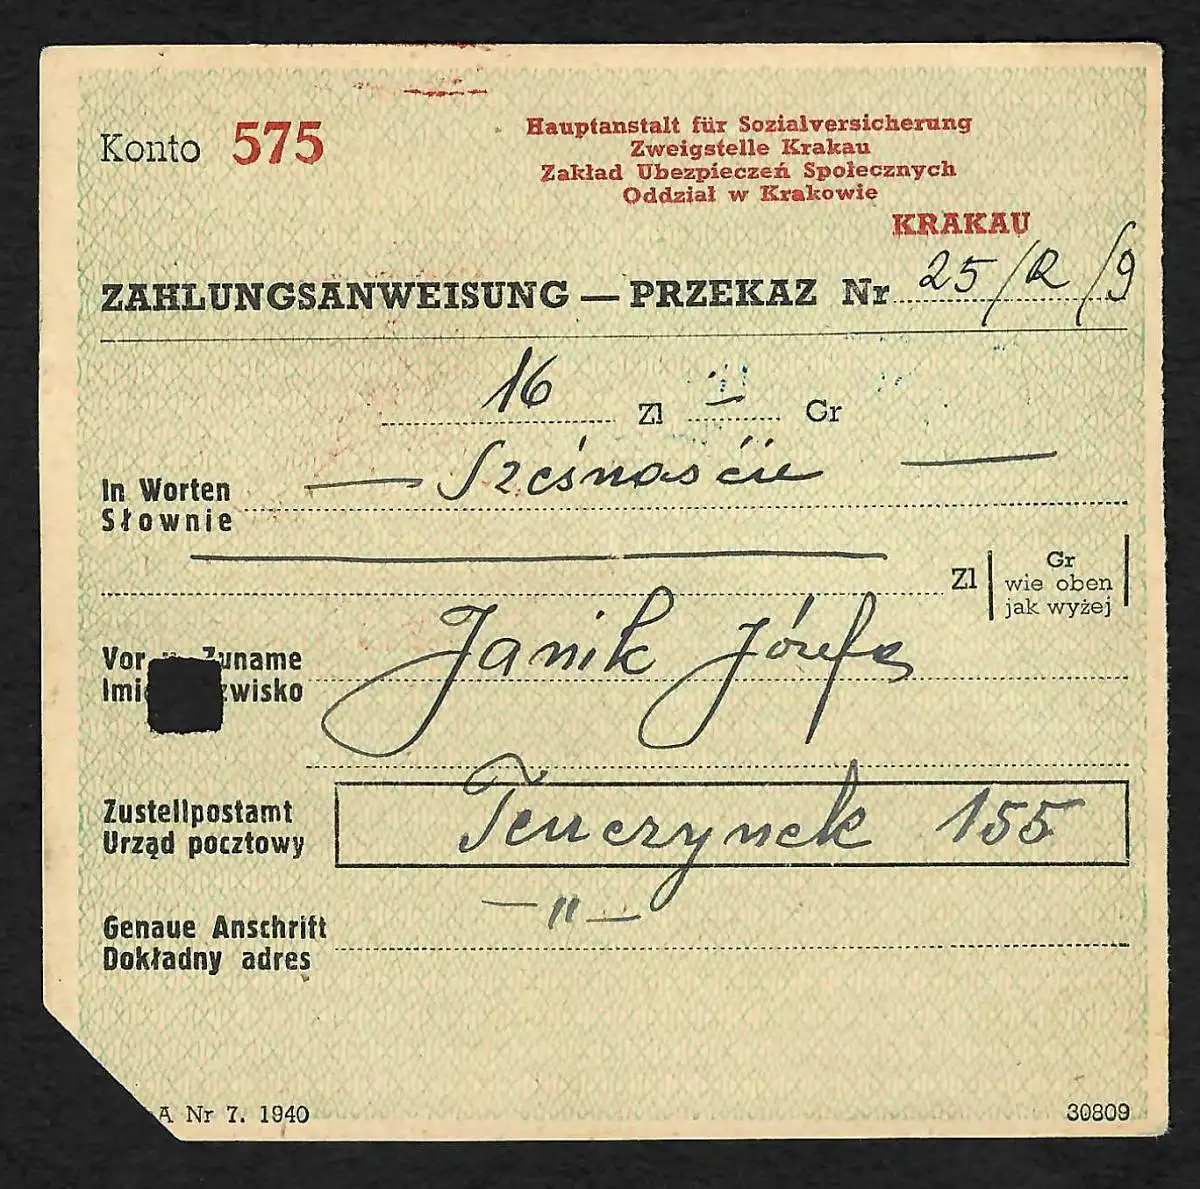 Konto 575
Hauptanstalt für Sozialversicherung
Zweigstelle Krakau
Zakład Ubezpieczeń Społecznych
Oddział w Krakowie
KRAKAU
ZAHLUNGSANWEISUNG — PRZEKAZ Nr 25/R/9
16 Zl — Gr
In Worten
Słownie
— Szesnaście —
Zl
Gr
wie oben
jak wyżej
Vor Zuname
Imi zwisko
Janik Józefa
Zustellpostamt
Urząd pocztowy
Tenczynek 155
Genaue Anschrift
Dokładny adres
— " —
A Nr 7. 1940
30809